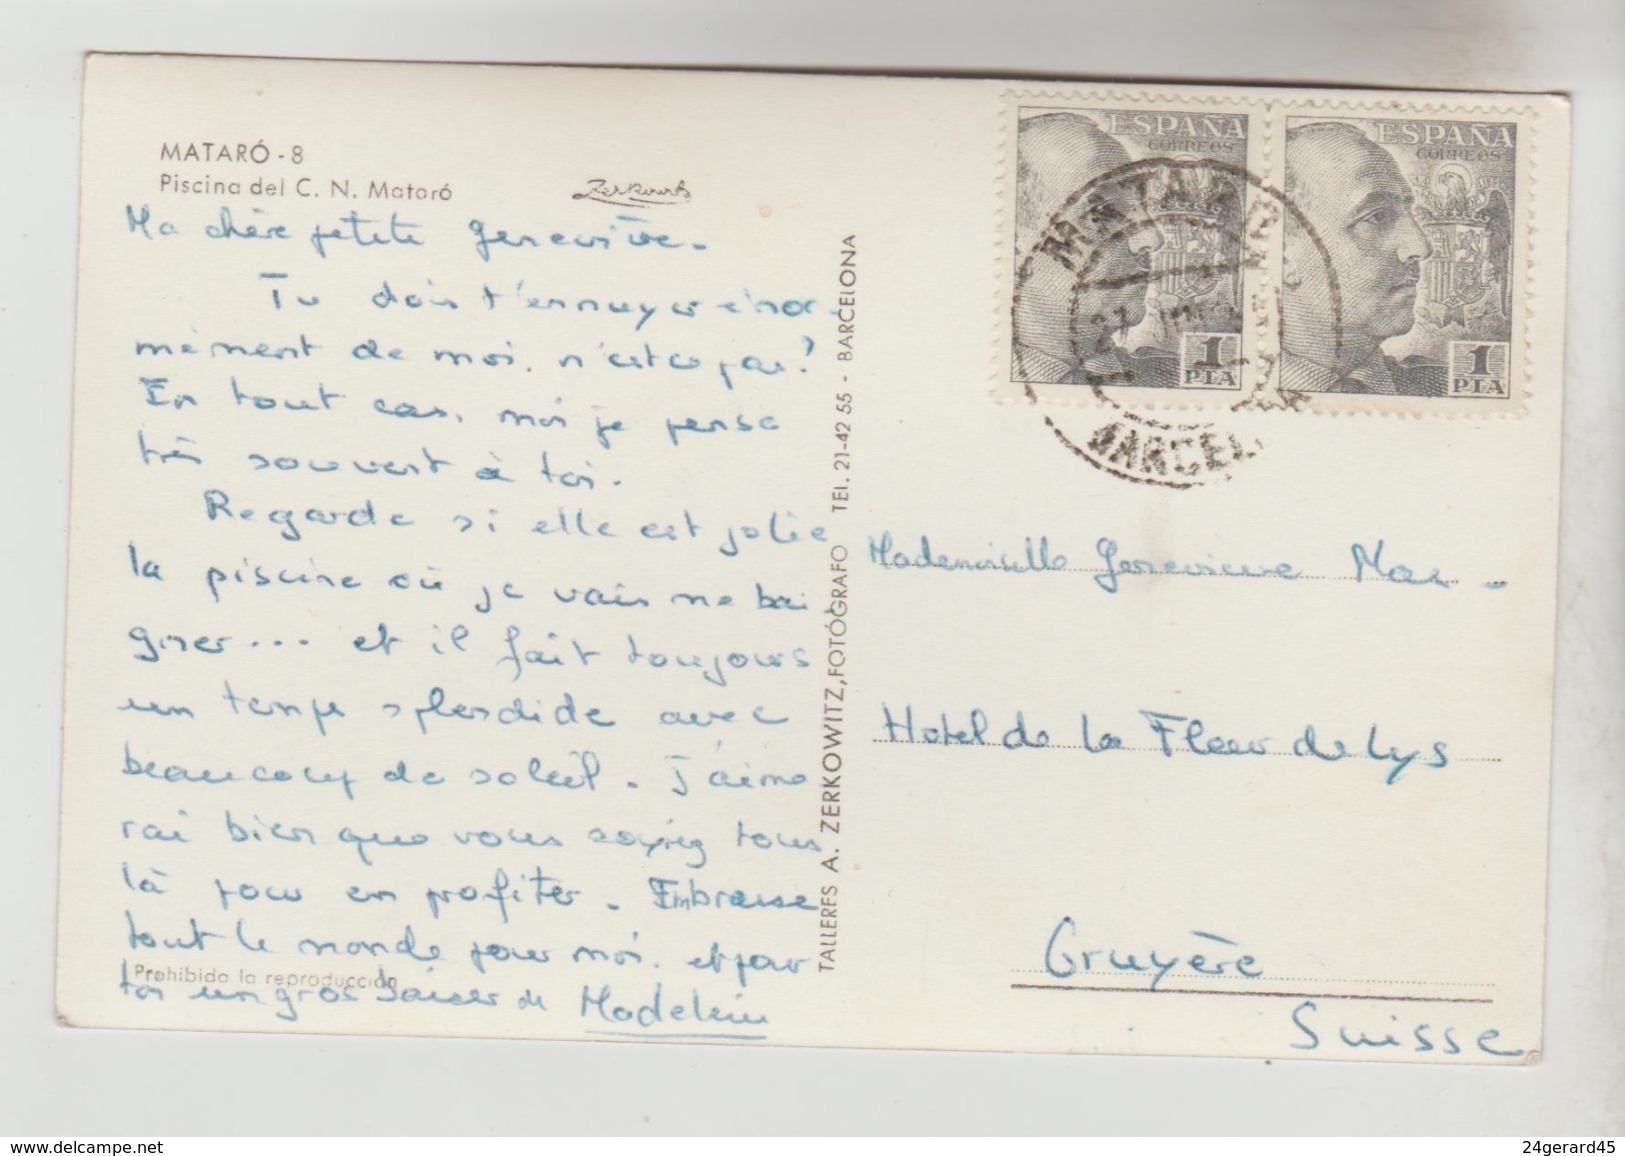 MATARÓ - 8
Piscina del C. N. Mataró
Zerkowitz
Ma chère petite Geneviève.
Tu dois t'ennuyer énor-
mément de moi, n'est ce pas?
En tout cas, moi je pense
très souvent à toi.
Regarde si elle est jolie
la piscine où je vais me bai-
gner... et il fait toujours
un temps splendide avec
beaucoup de soleil. J'aime
rai bien que vous soyiez tous
là pour en profiter. Embrasse
tout le monde pour moi. et pour
toi un gros baiser de Madeleine
Prohibida la reproducción
TALLERES A. ZERKOWITZ, FOTÓGRAFO TEL. 21-42 55 - BARCELONA
ESPAÑA
CORREOS
1
PTA
ESPAÑA
CORREOS
1
PTA
MATARO
27
BARCELONA
Mademoiselle Geneviève
Hotel de la Fleur de Lys
Gruyère
Suisse
www.delcampe.net
24gerard45